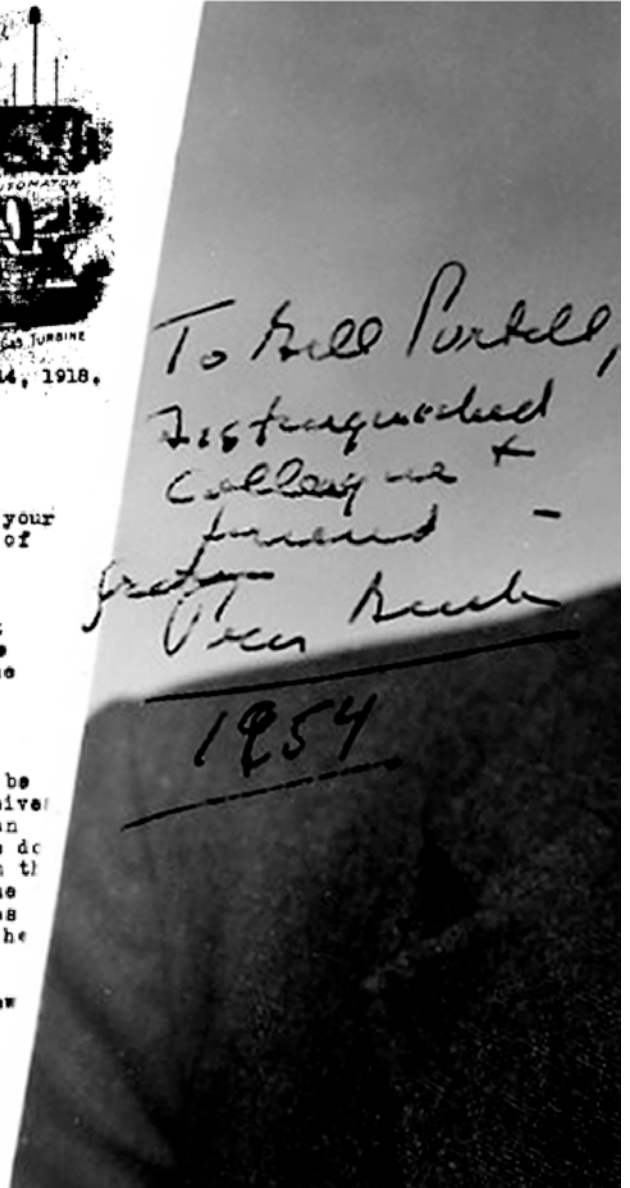 UTOMATON
GAS TURBINE
14, 1918.
your
of
be
do
he
To Bill Purtell,
Distinguished
Colleague +
friend -
Pres Bush
1954